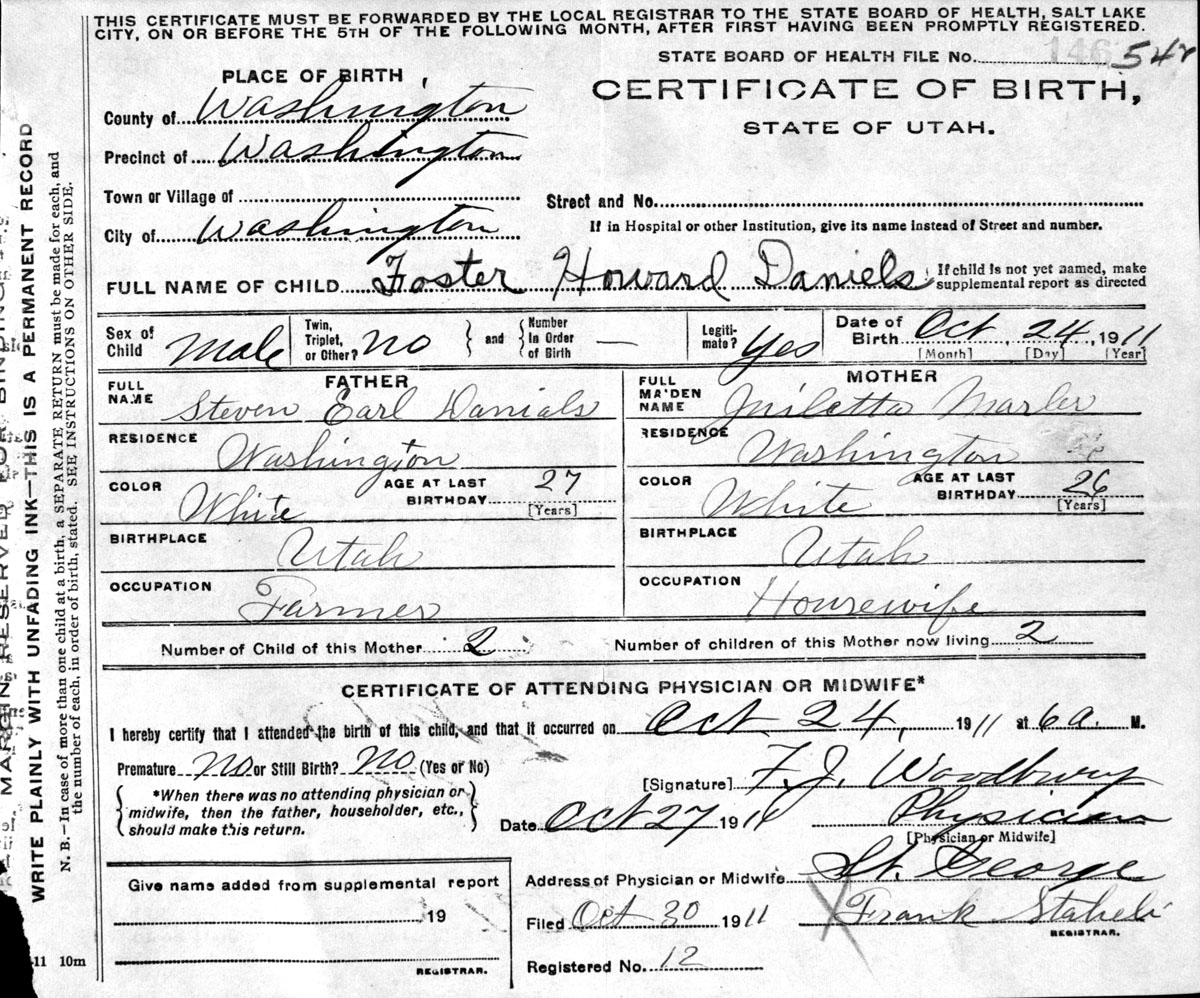 THIS CERTIFICATE MUST BE FORWARDED BY THE LOCAL REGISTRAR TO THE STATE BOARD OF HEALTH, SALT LAKE
CITY, ON OR BEFORE THE 5TH OF THE FOLLOWING MONTH, AFTER FIRST HAVING BEEN PROMPTLY REGISTERED.
STATE BOARD OF HEALTH FILE NO. 146 542
PLACE OF BIRTH
CERTIFICATE OF BIRTH,
STATE OF UTAH.
County of Washington
Precinct of Washington
Town or Village of
Street and No.
City of Washington
If in Hospital or other Institution, give its name instead of Street and number.
FULL NAME OF CHILD Foster Howard Daniels
If child is not yet named, make
supplemental report as directed
Sex of Child Male
Twin, Triplet, or Other? No
and
Number In Order of Birth —
Legiti-mate? Yes
Date of Birth Oct. 24 1911
[Month] [Day] [Year]
FATHER
FULL NAME Steven Earl Danials
RESIDENCE Washington
COLOR White
AGE AT LAST BIRTHDAY 27
[Years]
BIRTHPLACE Utah
OCCUPATION Farmer
MOTHER
FULL MAIDEN NAME Marler
RESIDENCE Washington
COLOR White
AGE AT LAST BIRTHDAY 26
[Years]
BIRTHPLACE Utah
OCCUPATION Housewife
Number of Child of this Mother 2
Number of children of this Mother now living 2
CERTIFICATE OF ATTENDING PHYSICIAN OR MIDWIFE*
I hereby certify that I attended the birth of this child, and that it occurred on Oct. 24, 1911 at 6 a. M.
Premature No or Still Birth? No (Yes or No)
*When there was no attending physician or
midwife, then the father, householder, etc.,
should make this return.
[Signature] F. J. Woodbury
Date Oct 27 1911
Physician
[Physician or Midwife]
Give name added from supplemental report
19
REGISTRAR.
Address of Physician or Midwife St. George
Filed Oct 30 1911
Frank Staheli
REGISTRAR.
Registered No. 12
-11 10m
MARGIN RESERVED FOR BINDING
WRITE PLAINLY WITH UNFADING INK—THIS IS A PERMANENT RECORD
N. B.—In case of more than one child at a birth, a SEPARATE RETURN must be made for each, and
the number of each, in order of birth, stated. SEE INSTRUCTONS ON OTHER SIDE.